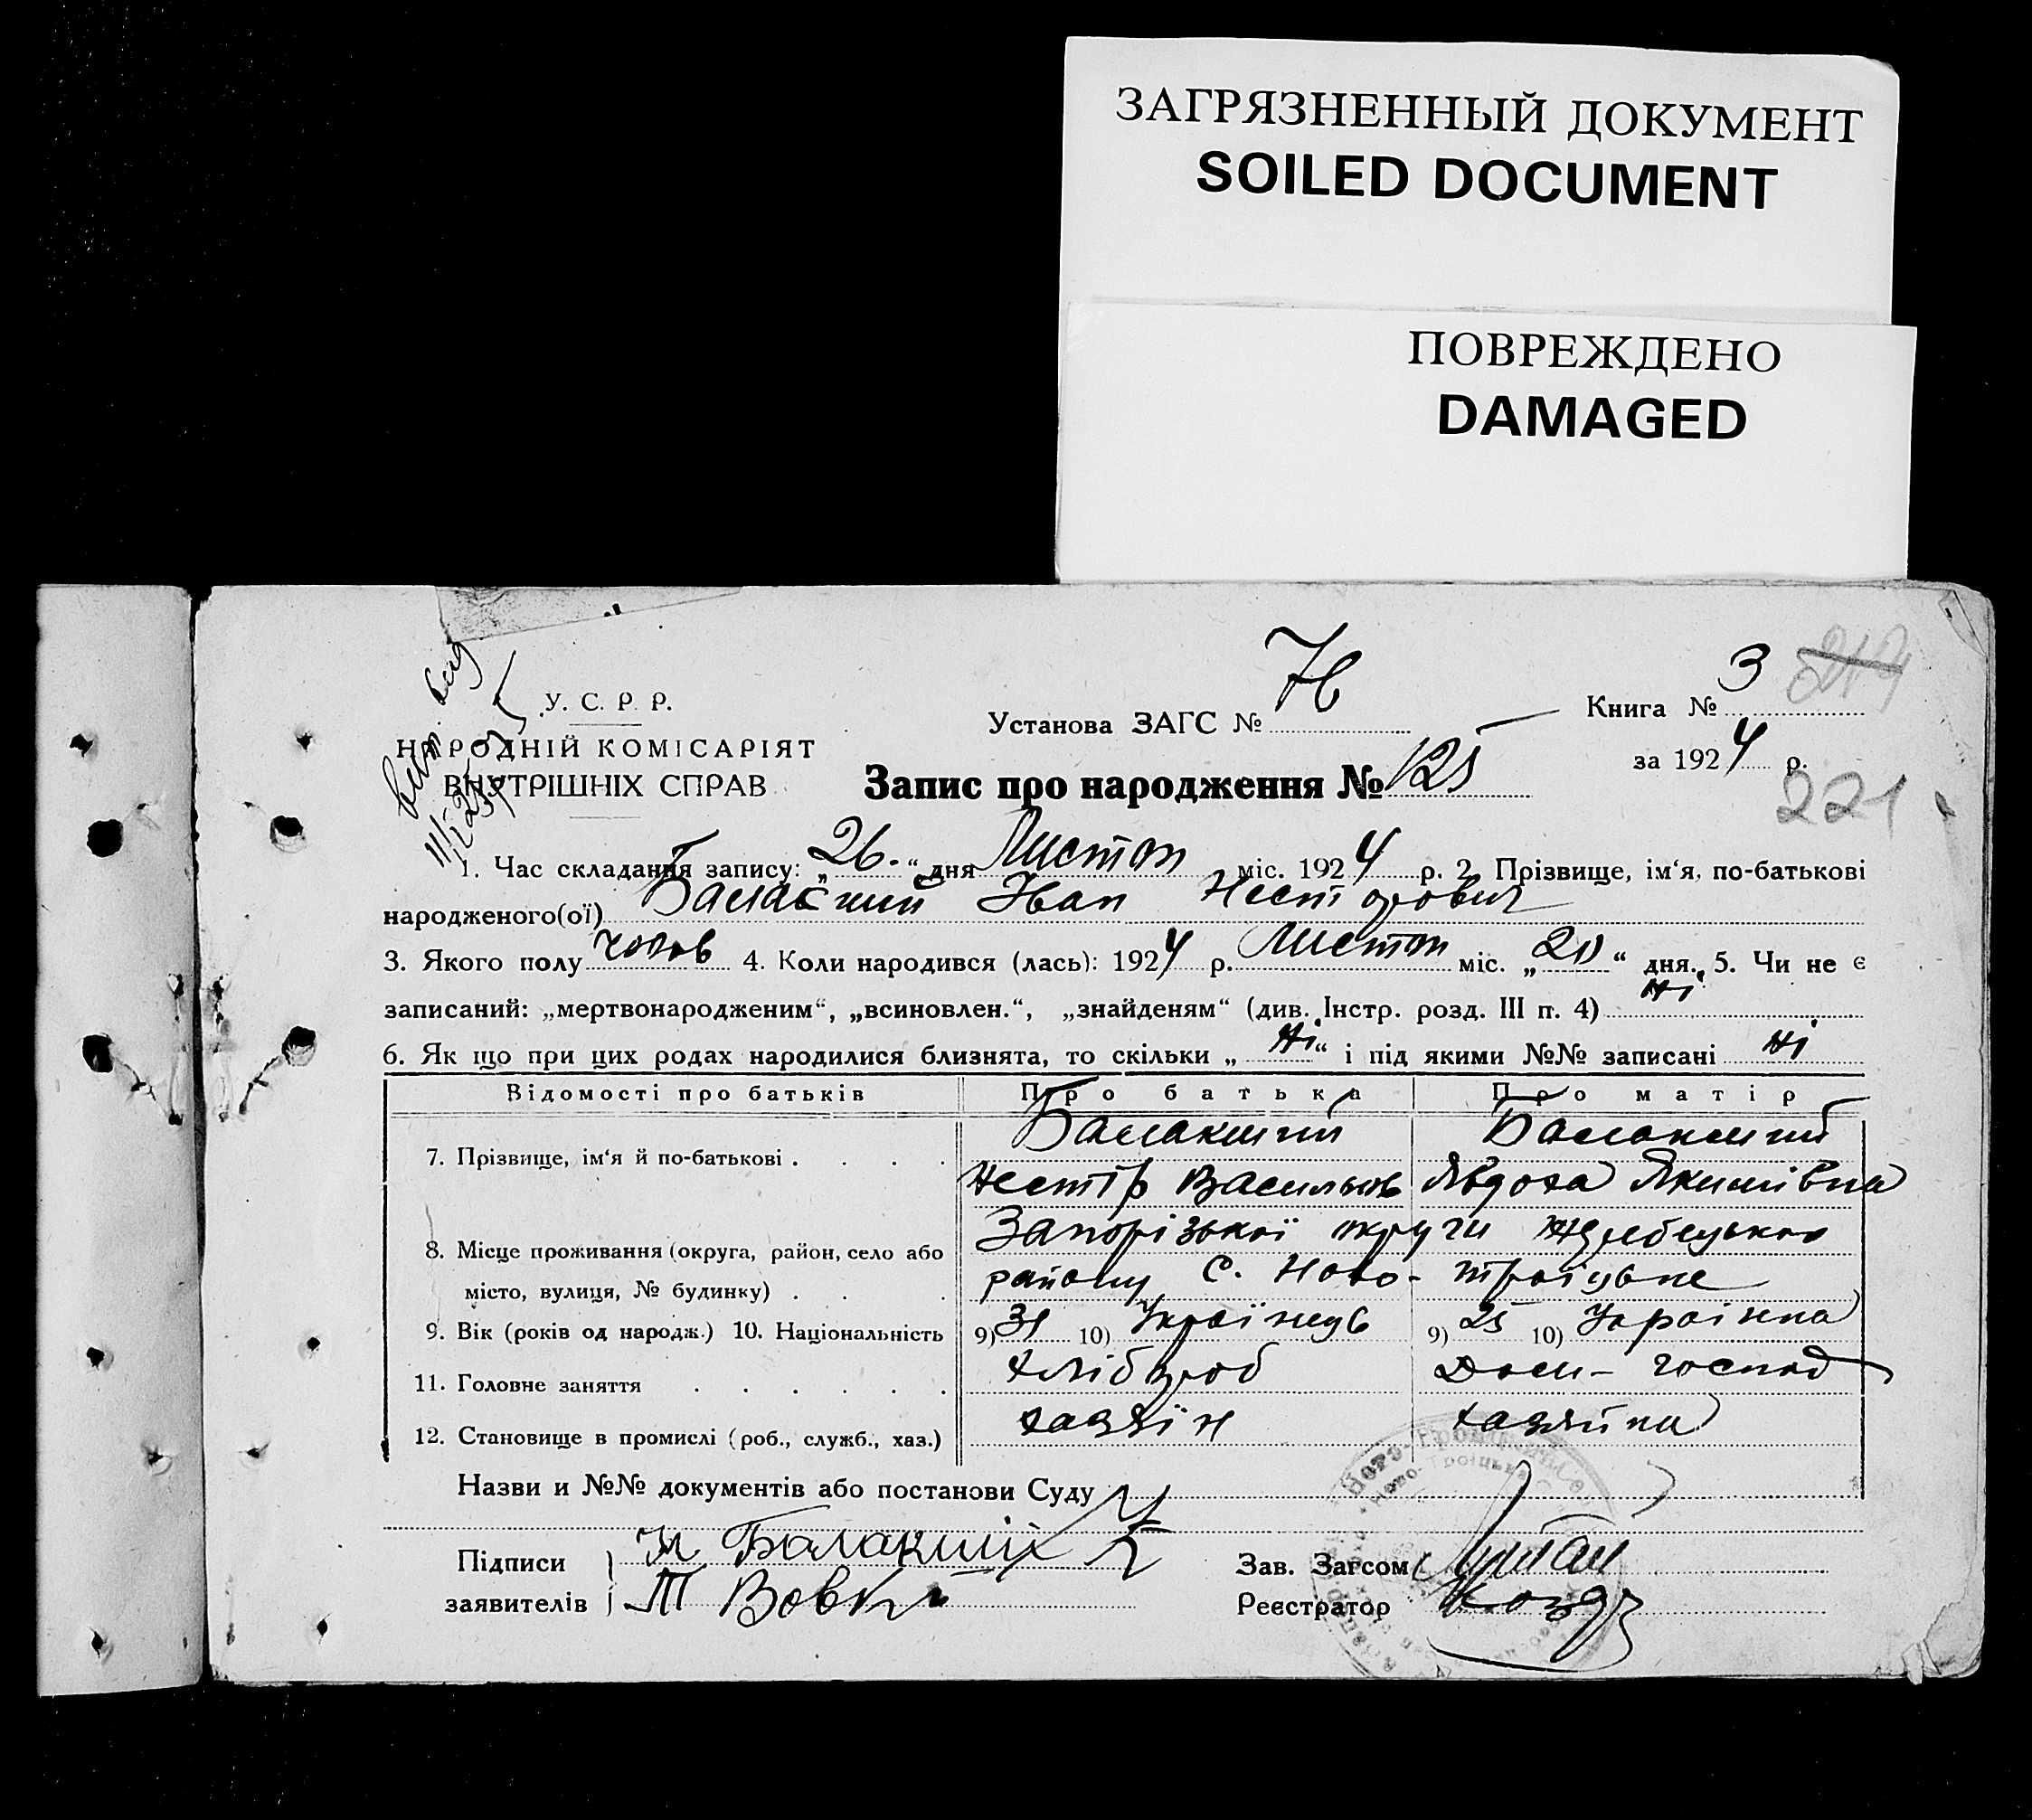 ЗАГРЯЗНЕННЫЙ ДОКУМЕНТ
SOILED DOCUMENT
ПОВРЕЖДЕНО
DAMAGED
У. С. Р. Р.
НАРОДНІЙ КОМІСАРІЯТ
ВНУТРІШНІХ СПРАВ
Установа ЗАГС № 76
Книга № 3
за 1924 р.
221
Запис про народження № 125
1. Час складання запису: „26.“ дня Листоп міс. 1924 р. 2. Прізвище, ім'я, по-батькові
народженого(ої) Балакший Іван Несторович
3. Якого полу чолов 4. Коли народився (лась): 1924 р. Листоп міс. „20“ дня. 5. Чи не є
записаний: „мертвонародженим“, „всиновлен.“, „знайденям“ (див. Інстр. розд. III п. 4) Ні
6. Як що при цих родах народилися близнята, то скільки „Ні“ і під якими №№ записані Ні
Відомості про батьків Про батька Про матір
7. Прізвище, ім'я й по-батькові . . . . Балакший Балакший
Нестір Васильов Явдоха Якимівна
8. Місце проживання (округа, район, село або Запорізької округи
місто, вулиця, № будинку) . . . району С. Ново-троіцьке
9. Вік (років од народж.) 10. Національність 9) 31 10) Українець 9) 25 10) Українка
11. Головне заняття . . . . . . Хлібороб Дом-господ
12. Становище в промислі (роб., служб., хаз.) хазяїн хазяйка
Назви и №№ документів або постанови Суду
Підписи Н Балакший
заявителів Т Вовк
Зав. Загсом
Реєстратор